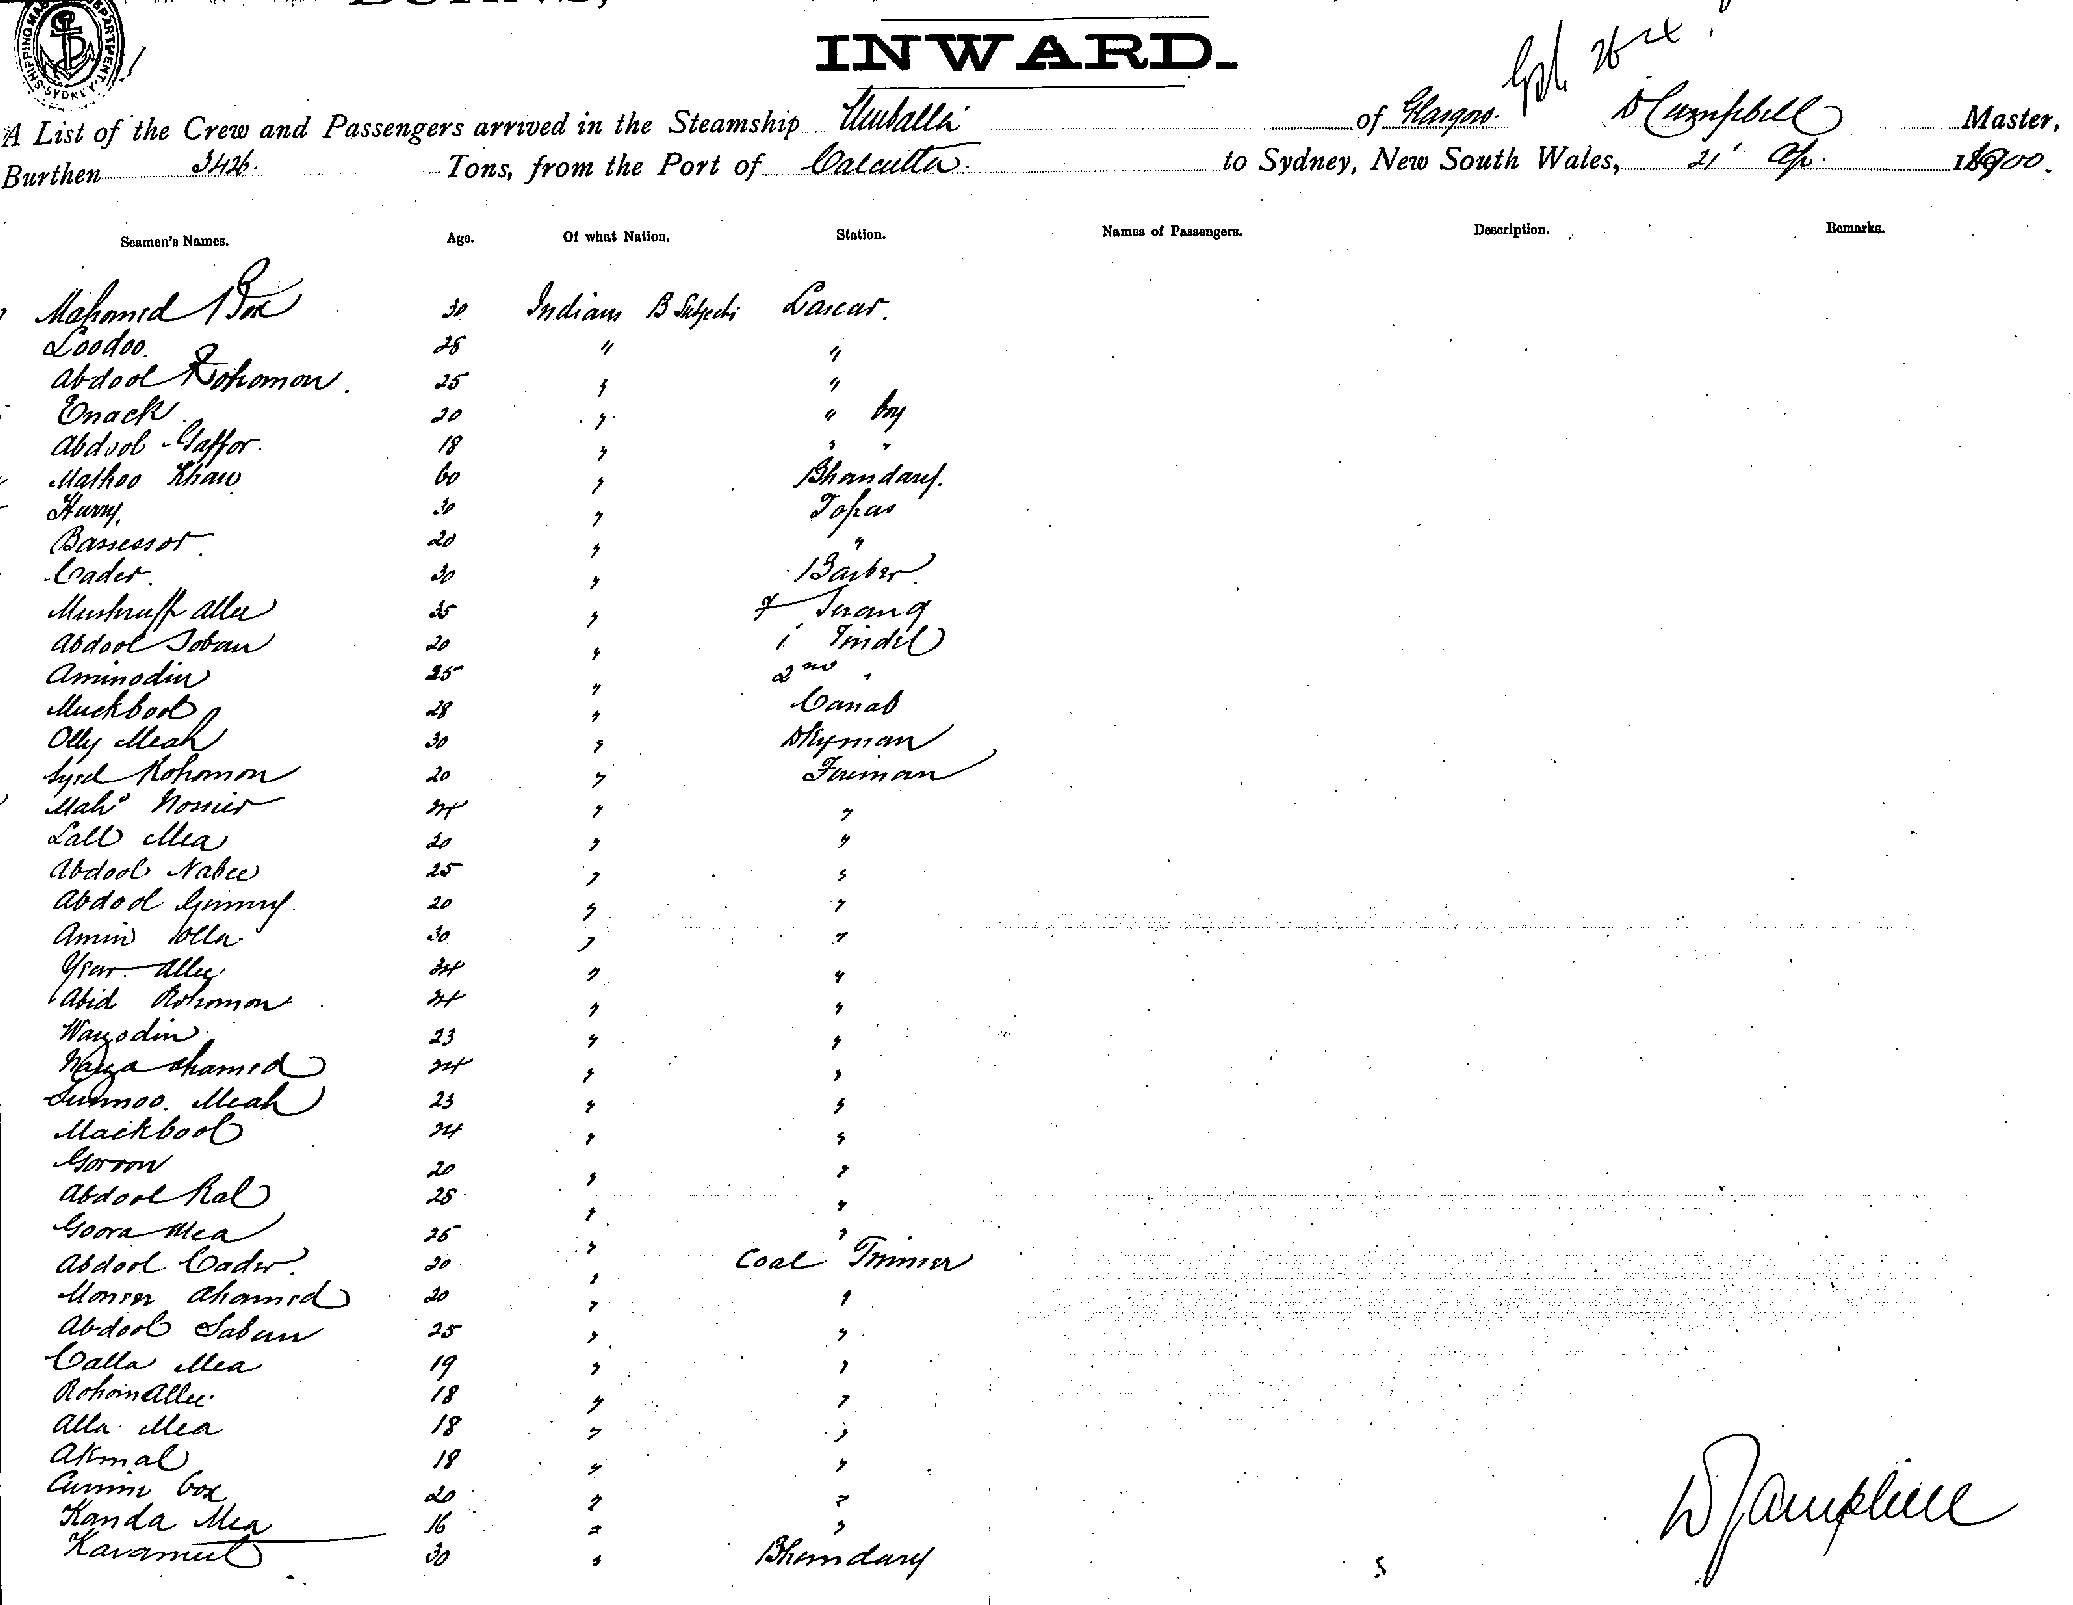 SHIPPING MA DEPARTMENT. SYDNEY.
INWARD.
A List of the Crew and Passengers arrived in the Steamship Umballa of Glasgow. D Campbell Master,
Burthen 3426. Tons, from the Port of Calcutta. to Sydney, New South Wales, 21 Ap. 1900.
Seamen's Names. Age. Of what Nation. Station. Names of Passengers. Description. Remarks.
Mahomed Box 30 Indians B Subjects Lascar.
Loodoo. 28 " "
Abdool Rohomon. 25 " "
Enack 20 " " boy
Abdool Gaffor. 18 " " "
Mathoo Khan 60 " Bhandary.
Hurry. 30 " Topas
Bassessor. 20 " "
Cader. 30 " Barber.
Mushruff Allee 35 " Serang
Abdool Soban 20 " 1 Tindel
Aminodin 25 " 2nd "
Muckbool 28 "
Olly Meah 30 " Dkyman
Syed Rohomon 20 " Fireman
Maho Nossier 24 " "
Lall Mea 20 " "
Abdool Nabee 25 " "
Abdool Gunny 20 " "
Amin Olla. 30 " "
Allee 34 " "
Abid Rohomon 24 " "
Wazodin 23 " "
Ahamed 24 " "
Sunnoo. Meah 23 " "
Mackbool 24 " "
20 " "
Abdool 28 " "
Goora Mea 26 " "
Abdool Cader. 20 " Coal Trimmer
Ahamed 20 " "
Abdool Soban 25 " "
Calla Mea 19 " "
Rohim Allee. 18 " "
Alla Mea 18 " "
Akmal 18 " "
Box 20 " "
Kanda Mea 16 " "
30 " Bhandary
D Campbell